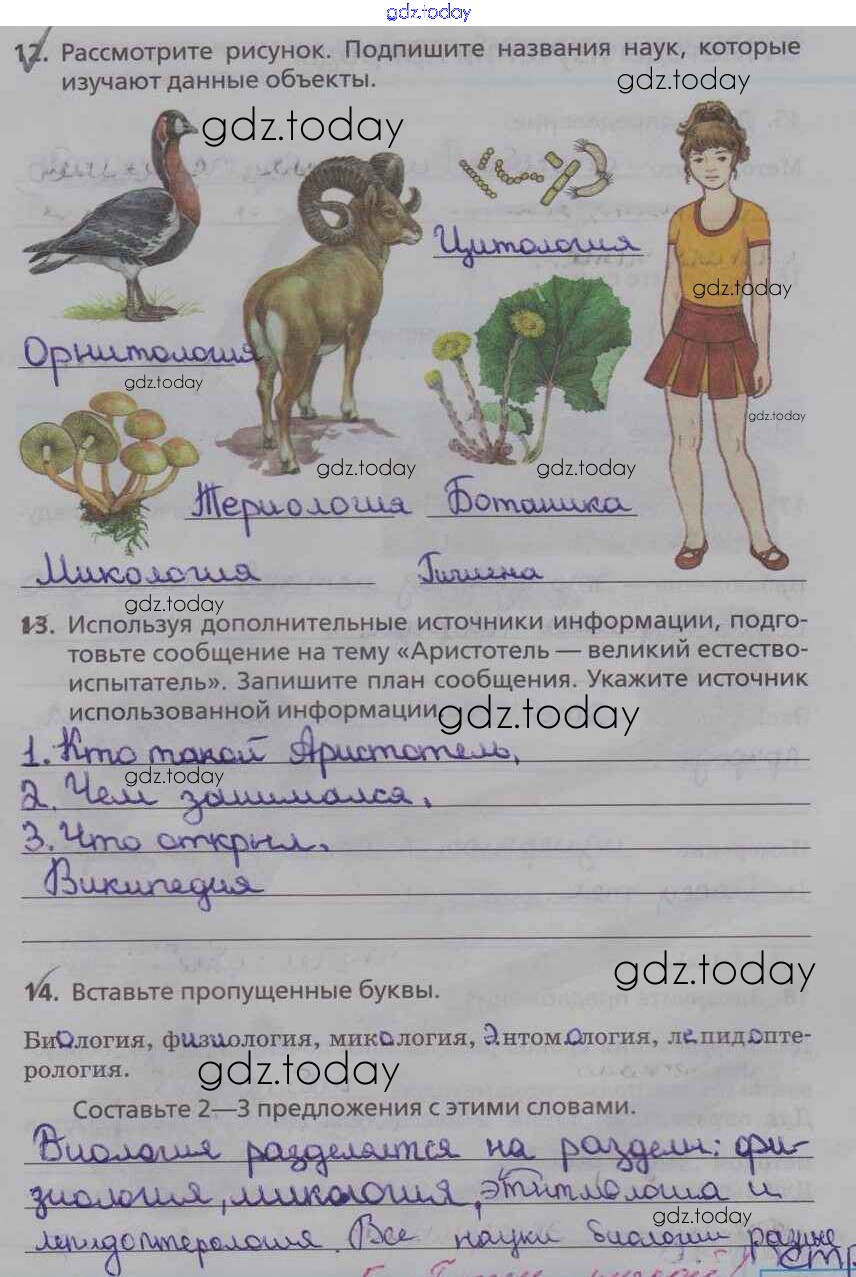 gdz.today
12. Рассмотрите рисунок. Подпишите названия наук, которые
изучают данные объекты.
gdz.today
gdz.today
Цитология
gdz.today
Орнитология
gdz.today
gdz.today
gdz.today
gdz.today
Териология Ботаника
Микология Гигиена
gdz.today
13. Используя дополнительные источники информации, подго-
товьте сообщение на тему «Аристотель — великий естество-
испытатель». Запишите план сообщения. Укажите источник
использованной информации.
gdz.today
1. Кто такой Аристотель.
gdz.today
2. Чем занимался.
3. Что открыл.
Википедия
gdz.today
14. Вставьте пропущенные буквы.
Биология, физиология, микология, Энтомология, лепидопте-
рология.
gdz.today
Составьте 2—3 предложения с этими словами.
Биология разделяется на разделы: фи-
зиология, микология, и
gdz.today
лепидоптерология. Все науки биологии разные
стр